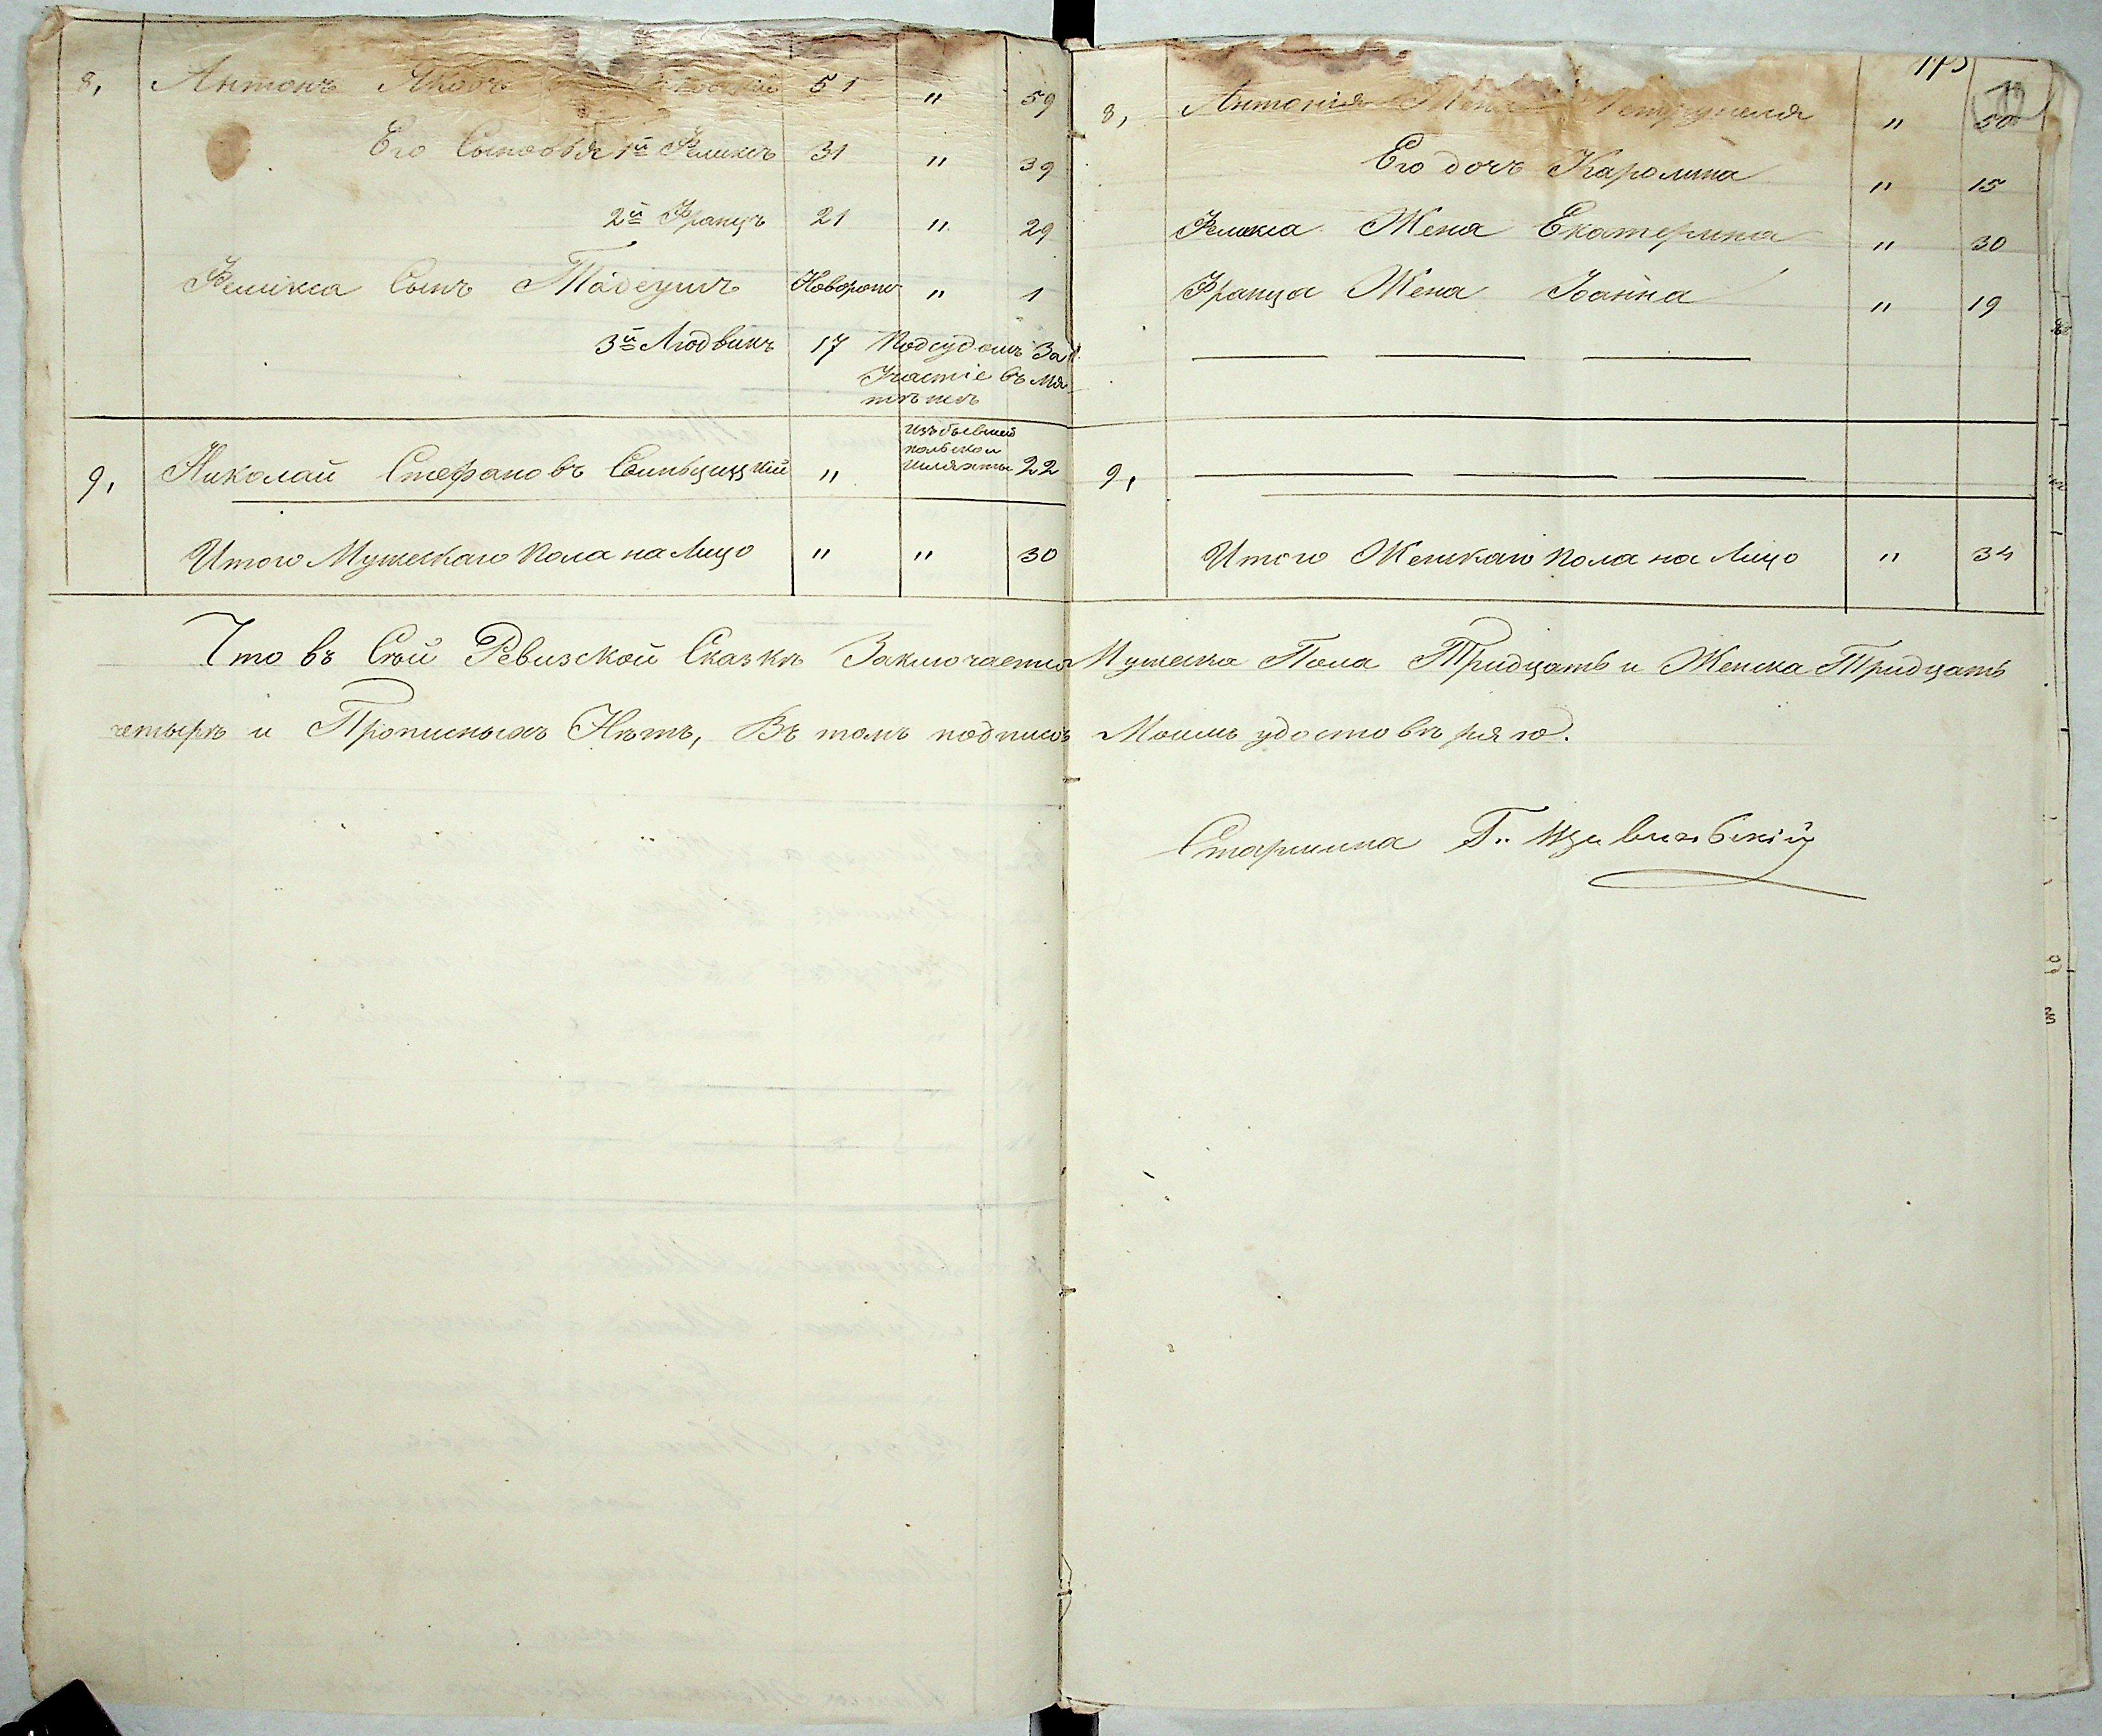 8, Антонъ Яковъ 51 " 59
Его Сыновья 1й Феликсъ 31 " 39
2й Францъ 21 " 29
Феликса Сынъ Тадеушъ Новорож " 1
3й Людвикъ 17 Подсудомъ За
Участіе въ мя-
тѣжѣ
9, Николай Стефановъ " Изъ бывшей
польской
шляхты 22
Итого Мужескаго Пола на Лицо " " 30
175
12
8, Антонія Жена Петрунеля " 50
Его дочь Каролина " 15
Феликса Жена Екатерина " 30
Франца Жена Іоанна " 19
9,
Итого Женскаго Пола на Лицо " 34
Что въ Сѣй Ревизской Сказкѣ Заключается Мужеска Пола Тридцать и Женска Тридцать
четырѣ и Прописныхъ Нѣтъ, Въ томъ подписомъ Моимъ удостовѣряю.
Старшина